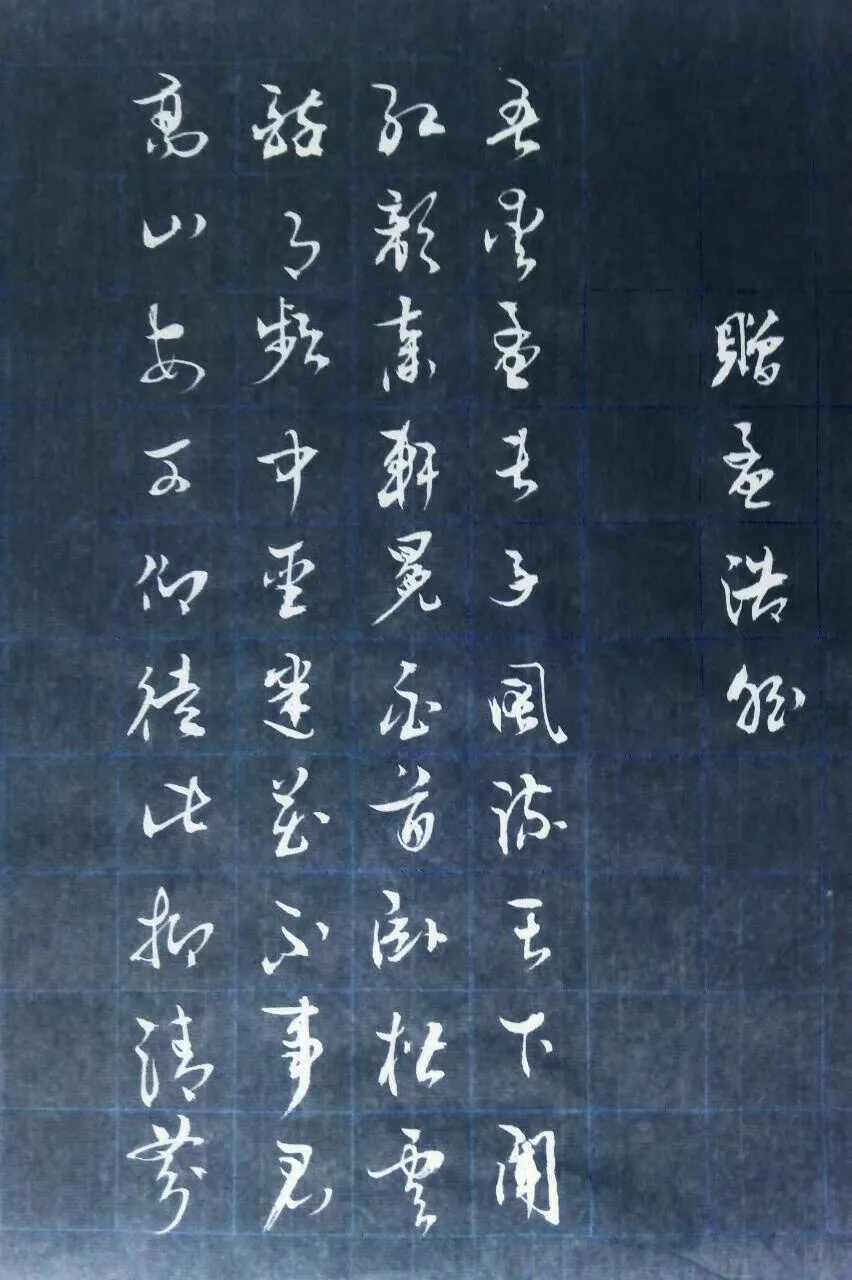 贈孟浩然
吾愛孟夫子風流天下聞
紅顏棄軒冕白首臥松雲
醉月頻中聖迷花不事君
高山安可仰徒此揖清芬